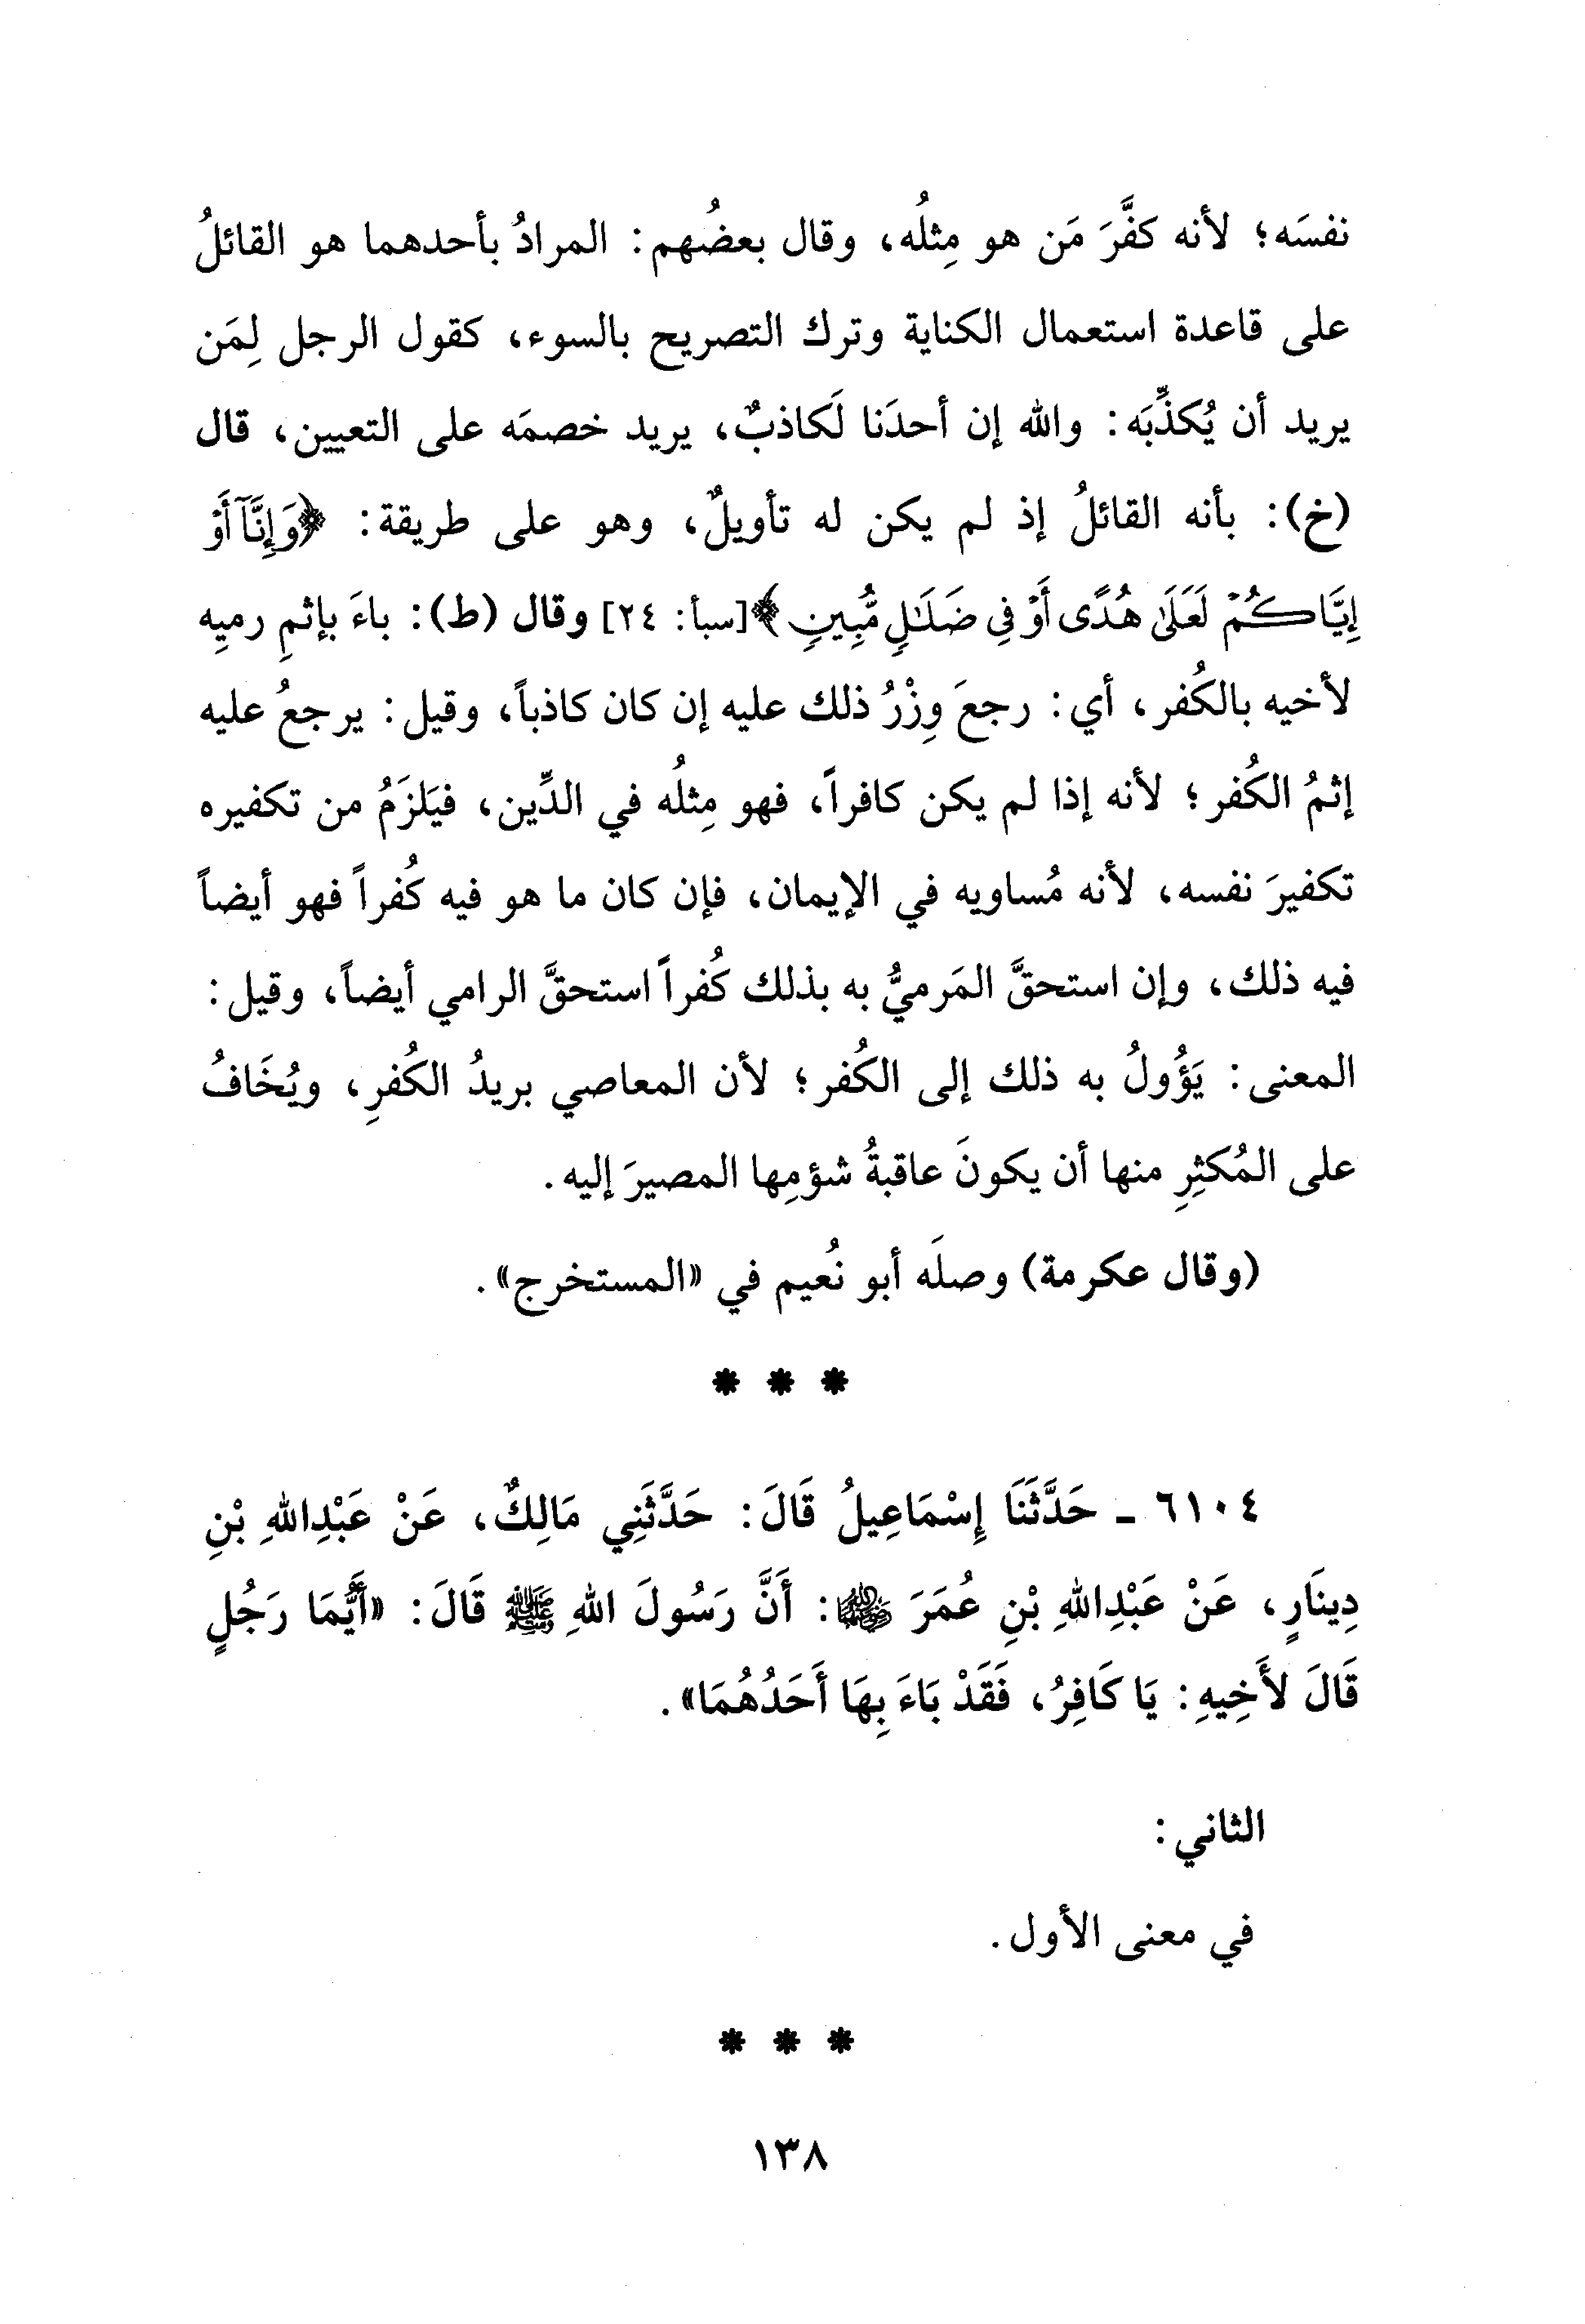 نفسَه؛ لأنه كفَّرَ مَن هو مِثلُه، وقال بعضُهم: المرادُ بأحدهما هو القائلُ
على قاعدة استعمال الكناية وترك التصريح بالسوء، كقول الرجل لِمَن
يريد أن يُكذِّبَه: والله إن أحدَنا لَكاذبٌ، يريد خصمَه على التعيين، قال
(خ): بأنه القائلُ إذ لم يكن له تأويلٌ، وهو على طريقة: ﴿وَإِنَّآ أَوْ
إِيَّاكُمْ لَعَلَىٰ هُدًى أَوْ فِى ضَلَـٰلٍ مُّبِينٍ﴾ [سبأ: ٢٤] وقال (ط): باءَ بإثمِ رميِه
لأخيه بالكُفر، أي: رجعَ وِزْرُ ذلك عليه إن كان كاذباً، وقيل: يرجعُ عليه
إثمُ الكُفر؛ لأنه إذا لم يكن كافراً، فهو مِثلُه في الدِّين، فيَلزَمُ من تكفيره
تكفيرَ نفسه، لأنه مُساويه في الإيمان، فإن كان ما هو فيه كُفراً فهو أيضاً
فيه ذلك، وإن استحقَّ المَرميُّ به بذلك كُفراً استحقَّ الرامي أيضاً، وقيل:
المعنى: يَؤُولُ به ذلك إلى الكُفر؛ لأن المعاصي بريدُ الكُفرِ، ويُخَافُ
على المُكثِرِ منها أن يكونَ عاقبةُ شؤمِها المصيرَ إليه.
(وقال عكرمة) وصلَه أبو نُعيم في «المستخرج».
* * *
٦١٠٤ ـ حَدَّثَنَا إِسْمَاعِيلُ قَالَ: حَدَّثَنِي مَالِكٌ، عَنْ عَبْدِاللهِ بْنِ
دِينَارٍ، عَنْ عَبْدِاللهِ بْنِ عُمَرَ رضي الله عنهما: أَنَّ رَسُولَ اللهِ ﷺ قَالَ: «أَيُّمَا رَجُلٍ
قَالَ لأَخِيهِ: يَا كَافِرُ، فَقَدْ بَاءَ بِهَا أَحَدُهُمَا».
الثاني:
في معنى الأول.
* * *
١٣٨